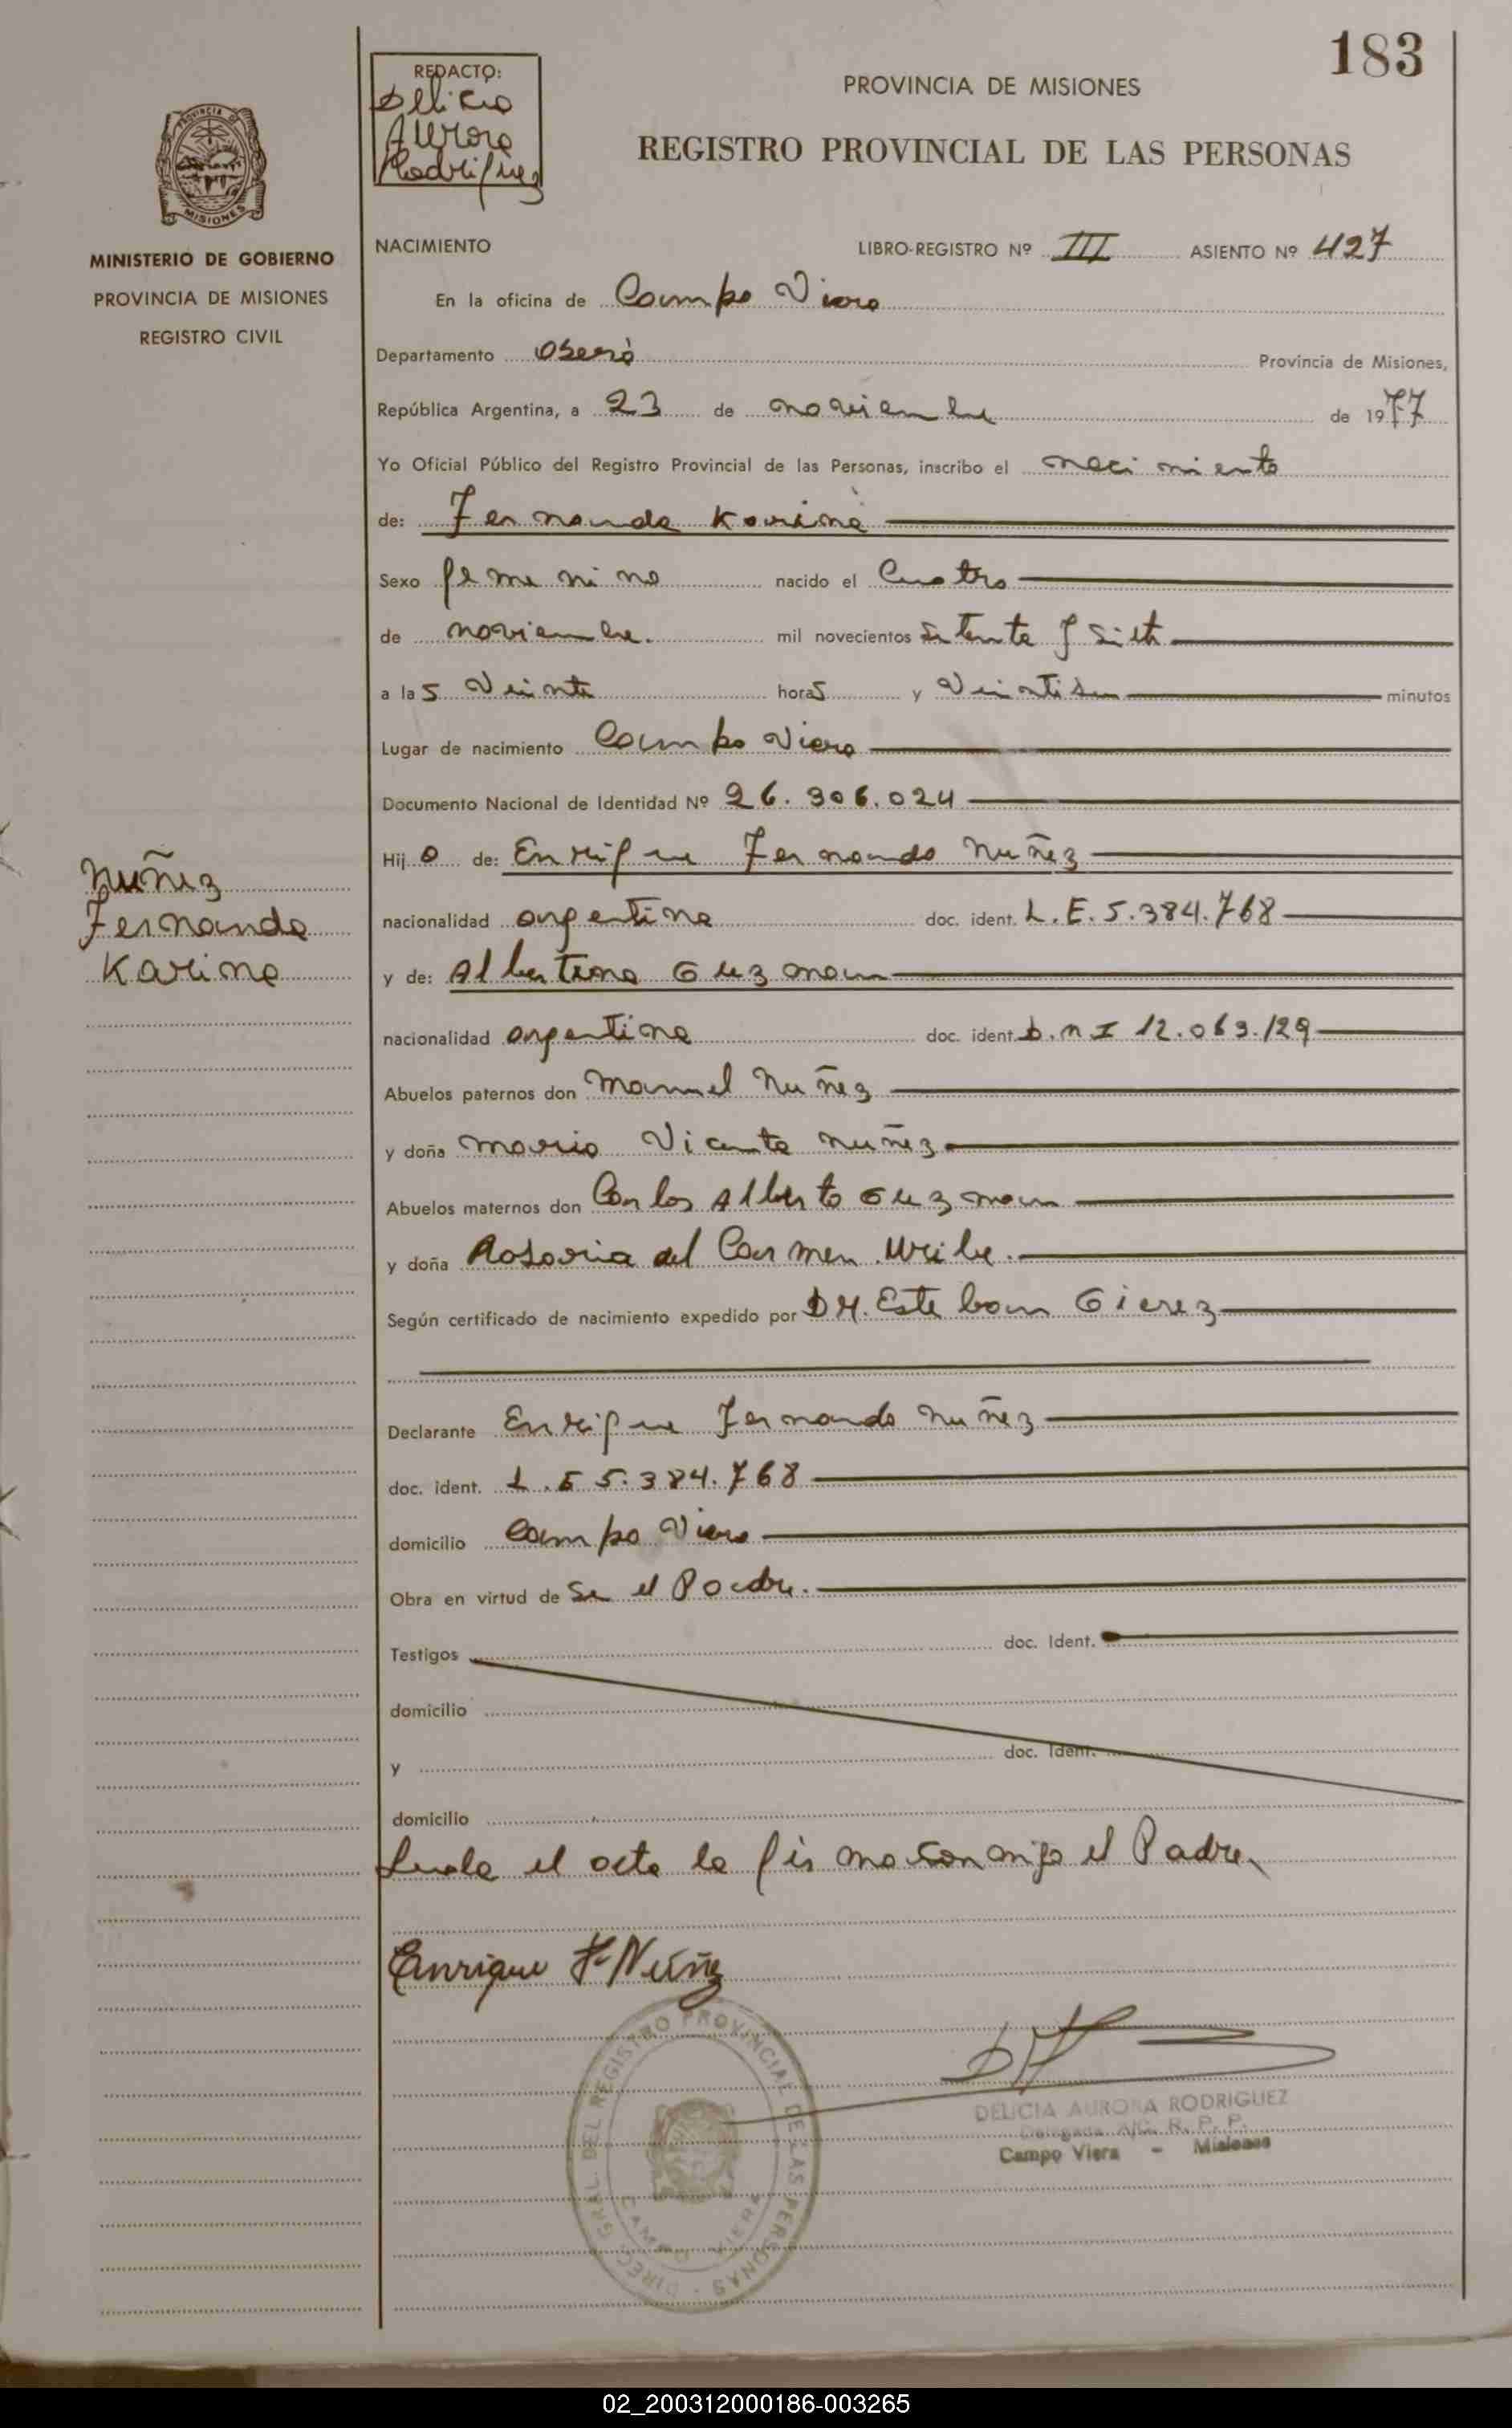 183
REDACTO:
Delicia
Aurora
Rodriguez
PROVINCIA DE MISIONES
REGISTRO PROVINCIAL DE LAS PERSONAS
PROVINCIA DE
MISIONES
MINISTERIO DE GOBIERNO
PROVINCIA DE MISIONES
REGISTRO CIVIL
NACIMIENTO LIBRO-REGISTRO Nº III ASIENTO Nº 427
En la oficina de Campo Viera
Departamento Oberá Provincia de Misiones,
República Argentina, a 23 de noviembre de 1977
Yo Oficial Público del Registro Provincial de las Personas, inscribo el nacimiento
de: Fernanda Karina
Sexo femenino nacido el Cuatro
de noviembre. mil novecientos setenta y siete
a las Veinte horas y minutos
Lugar de nacimiento Campo Viera
Documento Nacional de Identidad Nº 26.306.024
Hij a de: Enrique Fernando Nuñez
nacionalidad argentina doc. ident. L.E. 5.384.768
y de: Albertina Guzman
nacionalidad argentina doc. ident. D.N.I 12.063.129
Abuelos paternos don Manuel Nuñez
y doña Maria Vicenta Nuñez
Abuelos maternos don Carlos Alberto Guzman
y doña Rosaria del Carmen Uribe.
Según certificado de nacimiento expedido por DR. Esteban Gierez
Declarante Enrique Fernando Nuñez
doc. ident. L.E 5.384.768
domicilio Campo Viera
Obra en virtud de Ser el Padre.
Testigos doc. Ident.
domicilio
y doc. Ident.
domicilio
Leida el acta la firma conmigo el Padre
Nuñez
Fernanda
Karina
Enrique F. Nuñez
DIREC. GRAL. DEL REGISTRO PROVINCIAL DE LAS PERSONAS
CAMPO VIERA
DELICIA AURORA RODRIGUEZ
Delegada A/C. R. P. P.
Campo Viera - Misiones
02_200312000186-003265